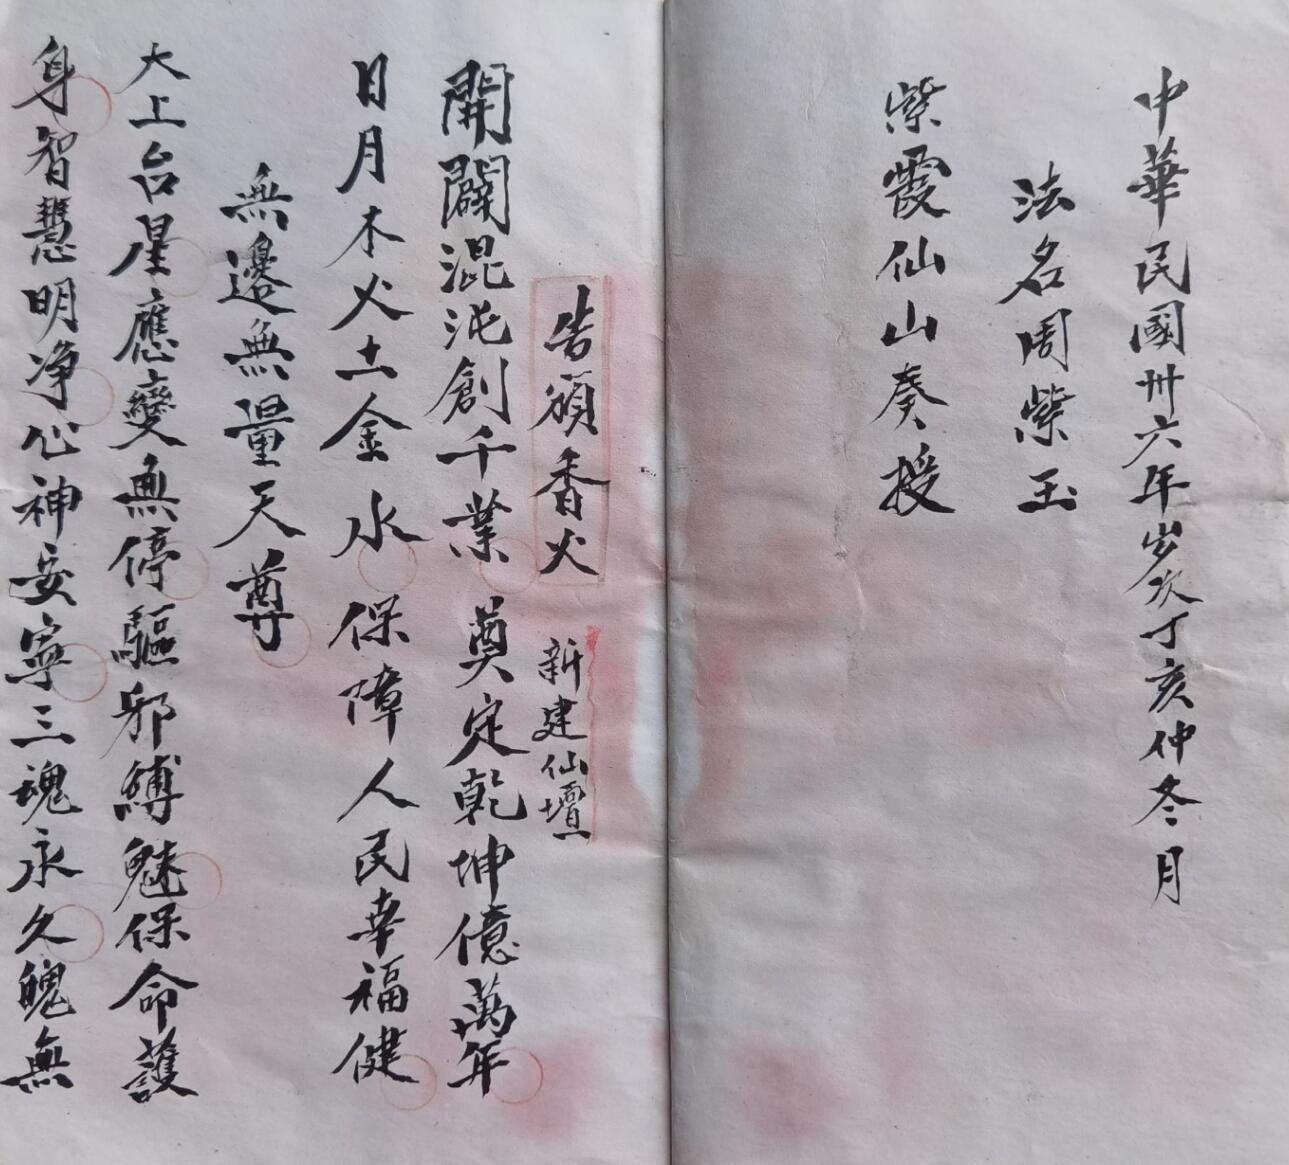 中華民國卅六年岁次丁亥仲冬月
法名周紫玉
紫霞仙山奏授
告頒香火
新建仙壇
開闢混沌創千業奠定乾坤億萬年
日月木火土金水保障人民幸福健
無邊無量天尊
大上台星應變無停驅邪縛魅保命護
身智慧明净心神安寧三魂永久魄無